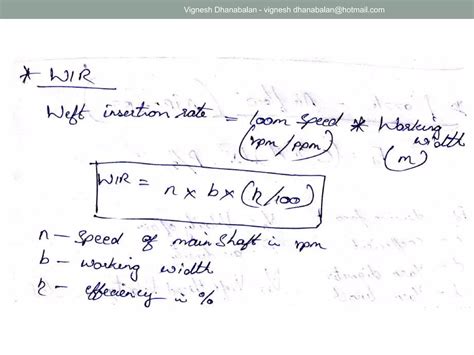 Vignesh Dhanabalan - vignesh dhanabalan@hotmail.com
* WIR
Weft insertion rate = loom speed * Working width
(rpm/ppm) (m)
WIR = n x b x (η/100)
n - speed of main shaft in rpm
b - working width
η - effeciency in %